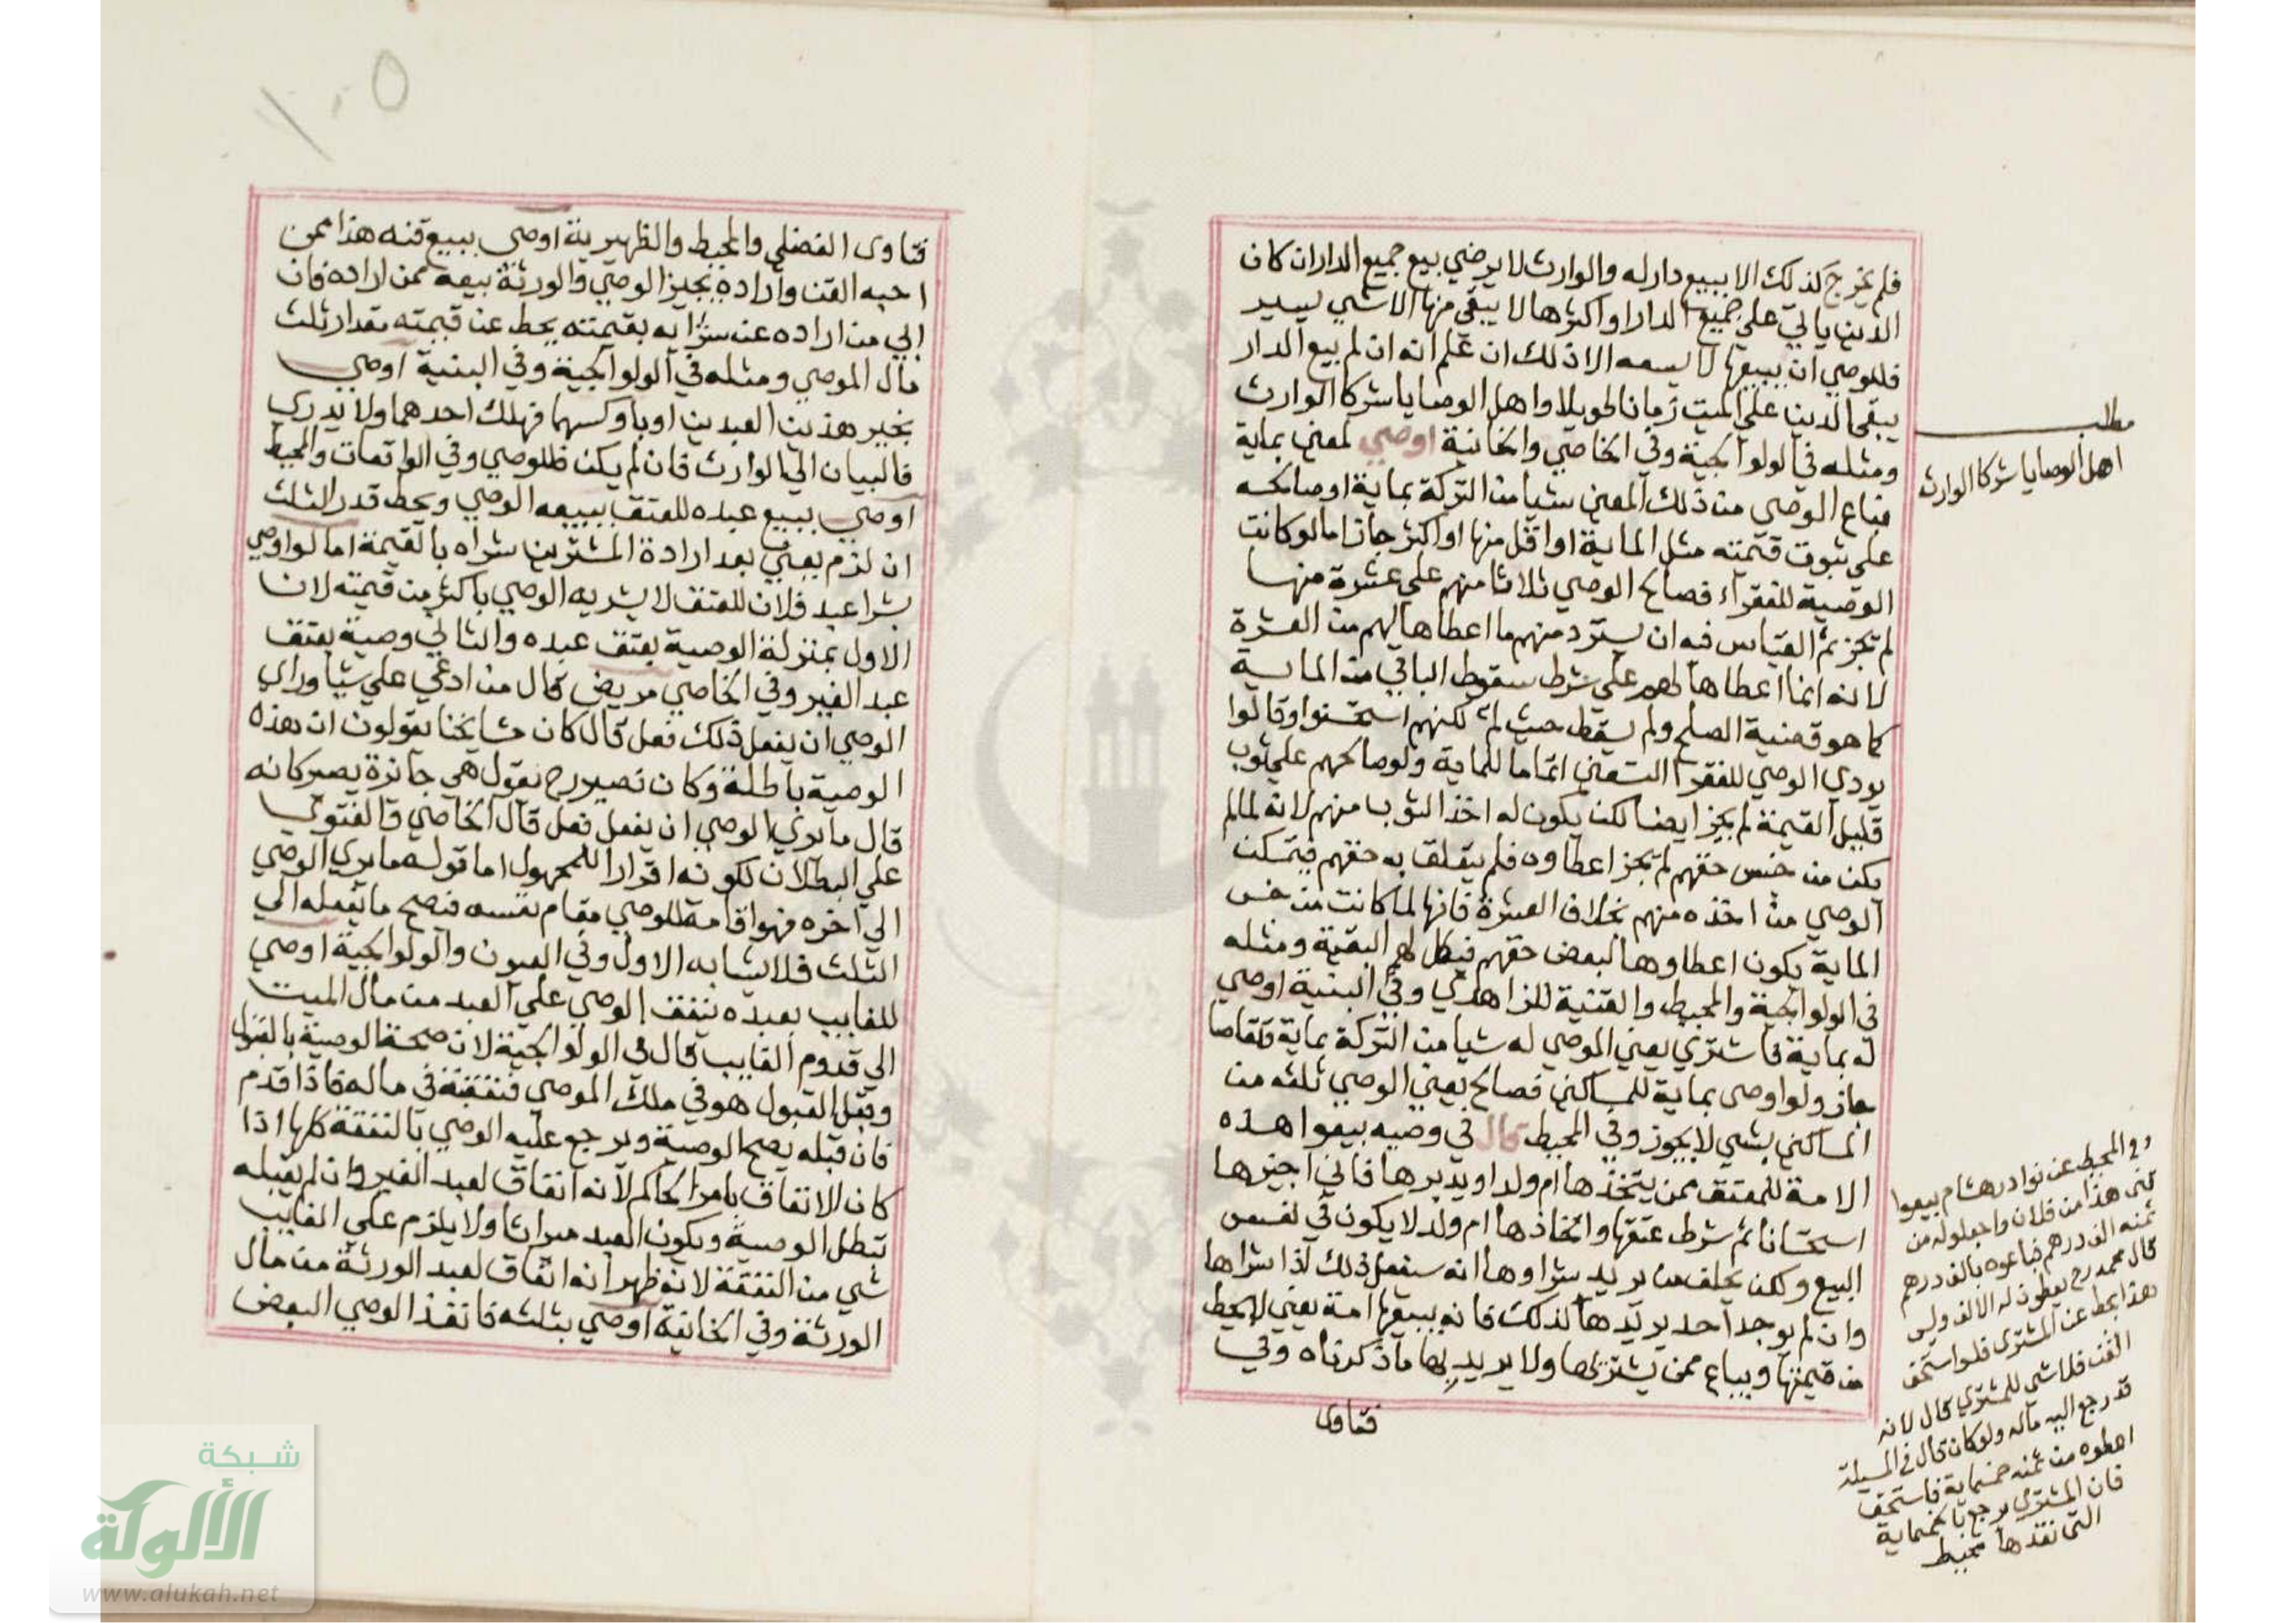 فلم يخرج كذلك الا ببيع دار له والوارث لا يرضي بيع جميع الدار ان كان
الدين ياتي علي جميع الدار او اكثرها لا يبقي منها الا شي يسير
فللوصي ان يبيعها لا يسعه الا ذلك ان علم انه ان لم بيع الدار
يبقي الدين علي الميت زمانا طويلا واهل الوصايا شركا الوارث
ومثله في الولوالجية وفي الخاصي والخانية اوصي لمعين بماية
فباع الوصي من ذلك المعين شيا من التركة بماية او صالحه
علي ثوب قيمته مثل الماية او اقل منها او اكثر جاز اما لو كانت
الوصية للفقراء فصالح الوصي ثلاثا منهم علي عشرة منها
لم تجز ثم القياس فيه ان يسترد منهم ما اعطاها لهم من العشرة
لانه انما اعطاها لهم علي شرط سقوط الباقي من الماية
كما هو قضية الصلح ولم يسقط حيث لم لكنهم استحسنوا وقالوا
يودي الوصي للفقرا التسعين اتماما للماية ولو صالحهم علي ثوب
قليل القيمة لم يجز ايضا لكن يكون له اخذ الثوب منهم لانه لما لم
يكن من جنس حقهم لم تجز اعطاوه فلم يتعلق به حقهم فيتمكن
الوصي من اخذه منهم بخلاف العشرة فانها لما كانت من جنس
الماية يكون اعطاوها لبعض حقهم فيكمل لهم البقية ومثله
في الولوالجية والمحيط والقنية للزاهدي وفي البنية اوصي
له بماية فاشتري يعني الموصي له شيا من التركة بماية وتقاصا
جاز ولو اوصي بماية للمساكين فصالح يعني الوصي ثلثه من
المساكين بشي لا يجوز وفي المحيط قال في وصيه بيعوا هذه
الامة للمعتق ممن يتخذها ام ولد او يدبرها فاني اجيزها
استحسانا ثم شرط عتقها واتخاذها ام ولد لا يكون في نفس
البيع ولكن يحلف من يريد شراوها انه سيفعل ذلك اذا شراها
وان لم يوجد احد يريدها لذلك فانه يبيعها امة يعني لا يحط
من قيمتها ويباع ممن يشتريها ولا يريد بها ما ذكرناه وفي
فتاوى
مطلب
اهل الوصايا شركا الوارث
وفي المحيط عن نوادر هشام بيعوا
قني هذا من فلان واجعلوا له من
ثمنه الف درهم فباعوه بالف درهم
قال محمد رح يعطون له الالف وليس
هذا بحط عن المشتري فلو استحق
القن فلا شي للمشتري قال لانه
قد رجع اليه ماله ولو كان قال في المسيلة
اعطوه من ثمنه خمسماية فاستحق
فان المشتري يرجع بالخمسماية
التي نقدها محيط
١٠٥
فتاوى الفضلي والمحيط والظهيرية اوصي ببيع قنه هذا ممن
احبه القن واراده يجيز الوصي والورثة بيعه ممن اراده فان
ابي من اراده عن شرايه بقيمته يحط عن قيمته مقدار ثلث
مال الموصي ومثله في الولوالجية وفي البنية اوصي
بخير هذين العبدين او باوكسهما فهلك احدهما ولا يدري
فالبيان الي الوارث فان لم يكن فللوصي وفي الواقعات والمحيط
اوصي ببيع عبده للعتق يبيعه الوصي ويحط قدر الثلث
ان لزم يعني بعد ارادة المشترين شراه بالقيمة اما لو اوصي
بشرا عبد فلان للعتق لا يشريه الوصي باكثر من قيمته لان
الاول بمنزلة الوصية بعتق عبده والثاني وصية بعتق
عبد الغير وفي الخاصي مريض قال من ادعي علي شيا وراي
الوصي ان يفعل ذلك فعل قال كان مشايخنا يقولون ان هذه
الوصية باطلة وكان نصير رح يقول هي جائزة يصير كانه
قال ما يري الوصي ان يفعل فعل قال الخاصي والفتوي
علي البطلان لكونه اقرارا للمجهول اما قوله ما يري الوصي
الي اخره فهو اقامة للوصي مقام نفسه فيصح ما يفعله الي
الثلث فلا يشابه الاول وفي العيون والولوالجية اوصي
للغايب بعبده ينفق الوصي علي العبد من مال الميت
الي قدوم الغايب قال في الولوالجية لان صحة الوصية بالقبول
وقبل القبول هو في ملك الموصي فنفقته في ماله فاذا قدم
فان قبله يصح الوصية ويرجع عليه الوصي بالنفقة كلها اذا
كان الانفاق بامر الحاكم لانه انفاق لعبد الغير وان لم يقبله
تبطل الوصية ويكون العبد ميراثا ولا يلزم علي الغايب
شي من النفقة لانه ظهر انه انفاق لعبد الورثة من مال
الورثة وفي الخانية اوصي بثلثه فانفذ الوصي البعض
شبكة
الألوكة
www.alukah.net